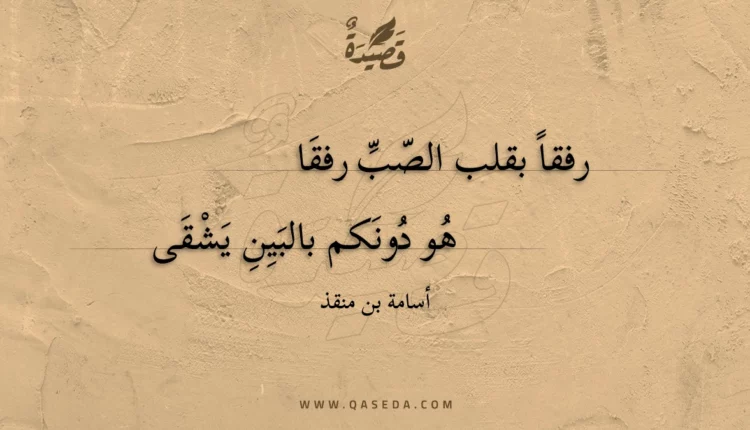 قَصِيدَةٌ
رفقاً بقلب الصّبِّ رفقَا
هُو دُونَكم بالبَيِنِ يَشْقَى
أسامة بن منقذ
WWW.QASEDA.COM